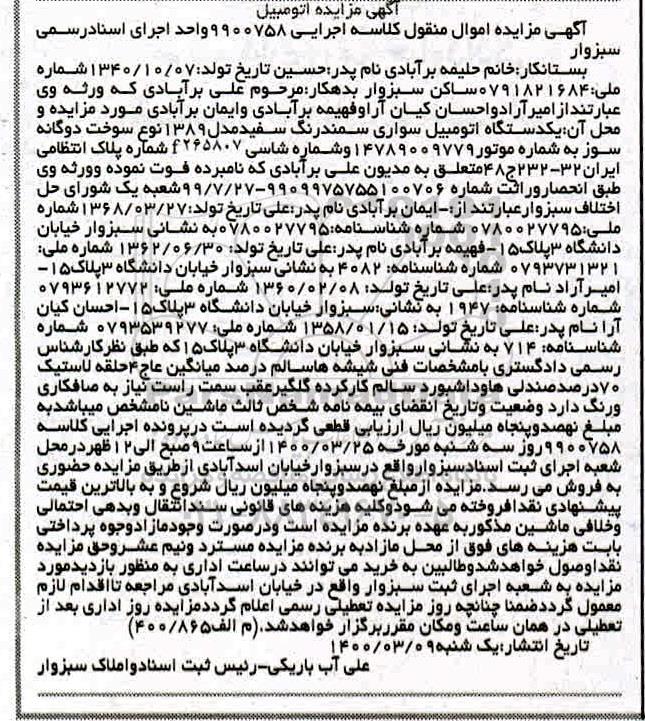 آگهی مزایده اتومبیل
آگهی مزایده اموال منقول کلاسه اجرایی ۹۹۰۰۷۵۸واحد اجرای اسنادرسمی
سبزوار
بستانکار:خانم حلیمه برآبادی نام پدر:حسین تاریخ تولد:۱۳۴۰/۱۰/۰۷شماره
ملی:۰۷۹۱۸۲۱۶۸۴ساکن سبزوار بدهکار:مرحوم علی برآبادی که ورثه وی
عبارتندازامیرآرادواحسان کیان آراوفهیمه برآبادی وایمان برآبادی مورد مزایده و
محل آن:یکدستگاه اتومبیل سواری سمندرنگ سفیدمدل۱۳۸۹نوع سوخت دوگانه
سوز به شماره موتور۱۴۷۸۹۰۰۹۷۷۹وشماره شاسی f۲۶۵۸۰۷ شماره پلاک انتظامی
ایران۳۲-۲۳۲ج۴۸متعلق به مدیون علی برآبادی که نامبرده فوت نموده وورثه وی
طبق انحصاروراثت شماره ۹۹۰۹۹۷۵۷۵۵۱۰۰۷۰۶-۹۹/۷/۲۷شعبه یک شورای حل
اختلاف سبزوارعبارتند از:-ایمان برآبادی نام پدر:علی تاریخ تولد:۱۳۶۸/۰۳/۲۷شماره
ملی:۰۷۸۰۰۲۷۷۹۵ شماره شناسنامه:۰۷۸۰۰۲۷۷۹۵به نشانی سبزوار خیابان
دانشگاه ۳پلاک۱۵-فهیمه برآبادی نام پدر:علی تاریخ تولد: ۱۳۶۲/۰۶/۳۰ شماره ملی:
۰۷۹۳۷۳۱۳۲۱ شماره شناسنامه: ۴۰۸۲ به نشانی سبزوار خیابان دانشگاه ۳پلاک۱۵-
امیرآراد نام پدر:علی تاریخ تولد: ۱۳۶۰/۰۲/۰۸ شماره ملی: ۰۷۹۳۶۱۲۷۷۲
شماره شناسنامه: ۱۹۴۷ به نشانی:سبزوار خیابان دانشگاه ۳پلاک۱۵-احسان کیان
آرا نام پدر:علی تاریخ تولد: ۱۳۵۸/۰۱/۱۵ شماره ملی: ۰۷۹۳۵۳۹۲۷۷ شماره
شناسنامه: ۷۱۴ به نشانی سبزوار خیابان دانشگاه ۳پلاک۱۵که طبق نظرکارشناس
رسمی دادگستری بامشخصات فنی شیشه هاسالم درصد میانگین عاج۴حلقه لاستیک
۷۰درصدصندلی هاوداشبورد سالم کارکرده گلگیرعقب سمت راست نیاز به صافکاری
ورنگ دارد وضعیت وتاریخ انقضای بیمه نامه شخص ثالث ماشین نامشخص میباشدبه
مبلغ نهصدوپنجاه میلیون ریال ارزیابی قطعی گردیده است درپرونده اجرایی کلاسه
۹۹۰۰۷۵۸روز سه شنبه مورخه ۱۴۰۰/۰۳/۲۵ ازساعت۹صبح الی۱۲ظهردرمحل
شعبه اجرای ثبت اسنادسبزوارواقع درسبزوارخیابان اسدآبادی ازطریق مزایده حضوری
به فروش می رسد.مزایده ازمبلغ نهصدوپنجاه میلیون ریال شروع و به بالاترین قیمت
پیشنهادی نقدافروخته می شودوکلیه هزینه های قانونی سندانتقال وبدهی احتمالی
وخلافی ماشین مذکوربه عهده برنده مزایده است ودرصورت وجودمازادوجوه پرداختی
بابت هزینه های فوق از محل مازادبه برنده مزایده مسترد ونیم عشروحق مزایده
نقداوصول خواهدشدوطالبین به خرید می توانند درساعت اداری به منظور بازدیدمورد
مزایده به شعبه اجرای ثبت سبزوار واقع در خیابان اسدآبادی مراجعه تااقدام لازم
معمول گرددضمنا چنانچه روز مزایده تعطیلی رسمی اعلام گرددمزایده روز اداری بعد از
تعطیلی در همان ساعت ومکان مقرربرگزار خواهدشد.(م الف۴۰۰/۸۶۵)
تاریخ انتشار:یک شنبه۱۴۰۰/۰۳/۰۹
علی آب باریکی-رئیس ثبت اسنادواملاک سبزوار